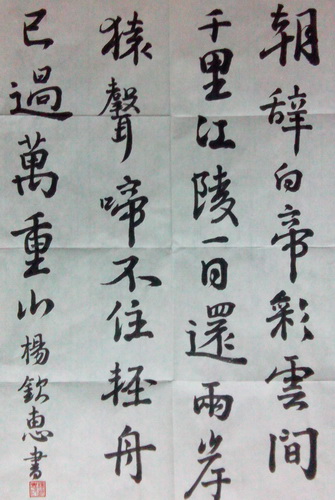 朝辞白帝彩雲間
千里江陵一日還兩岸
猿聲啼不住輕舟
已過萬重山楊欽惠書